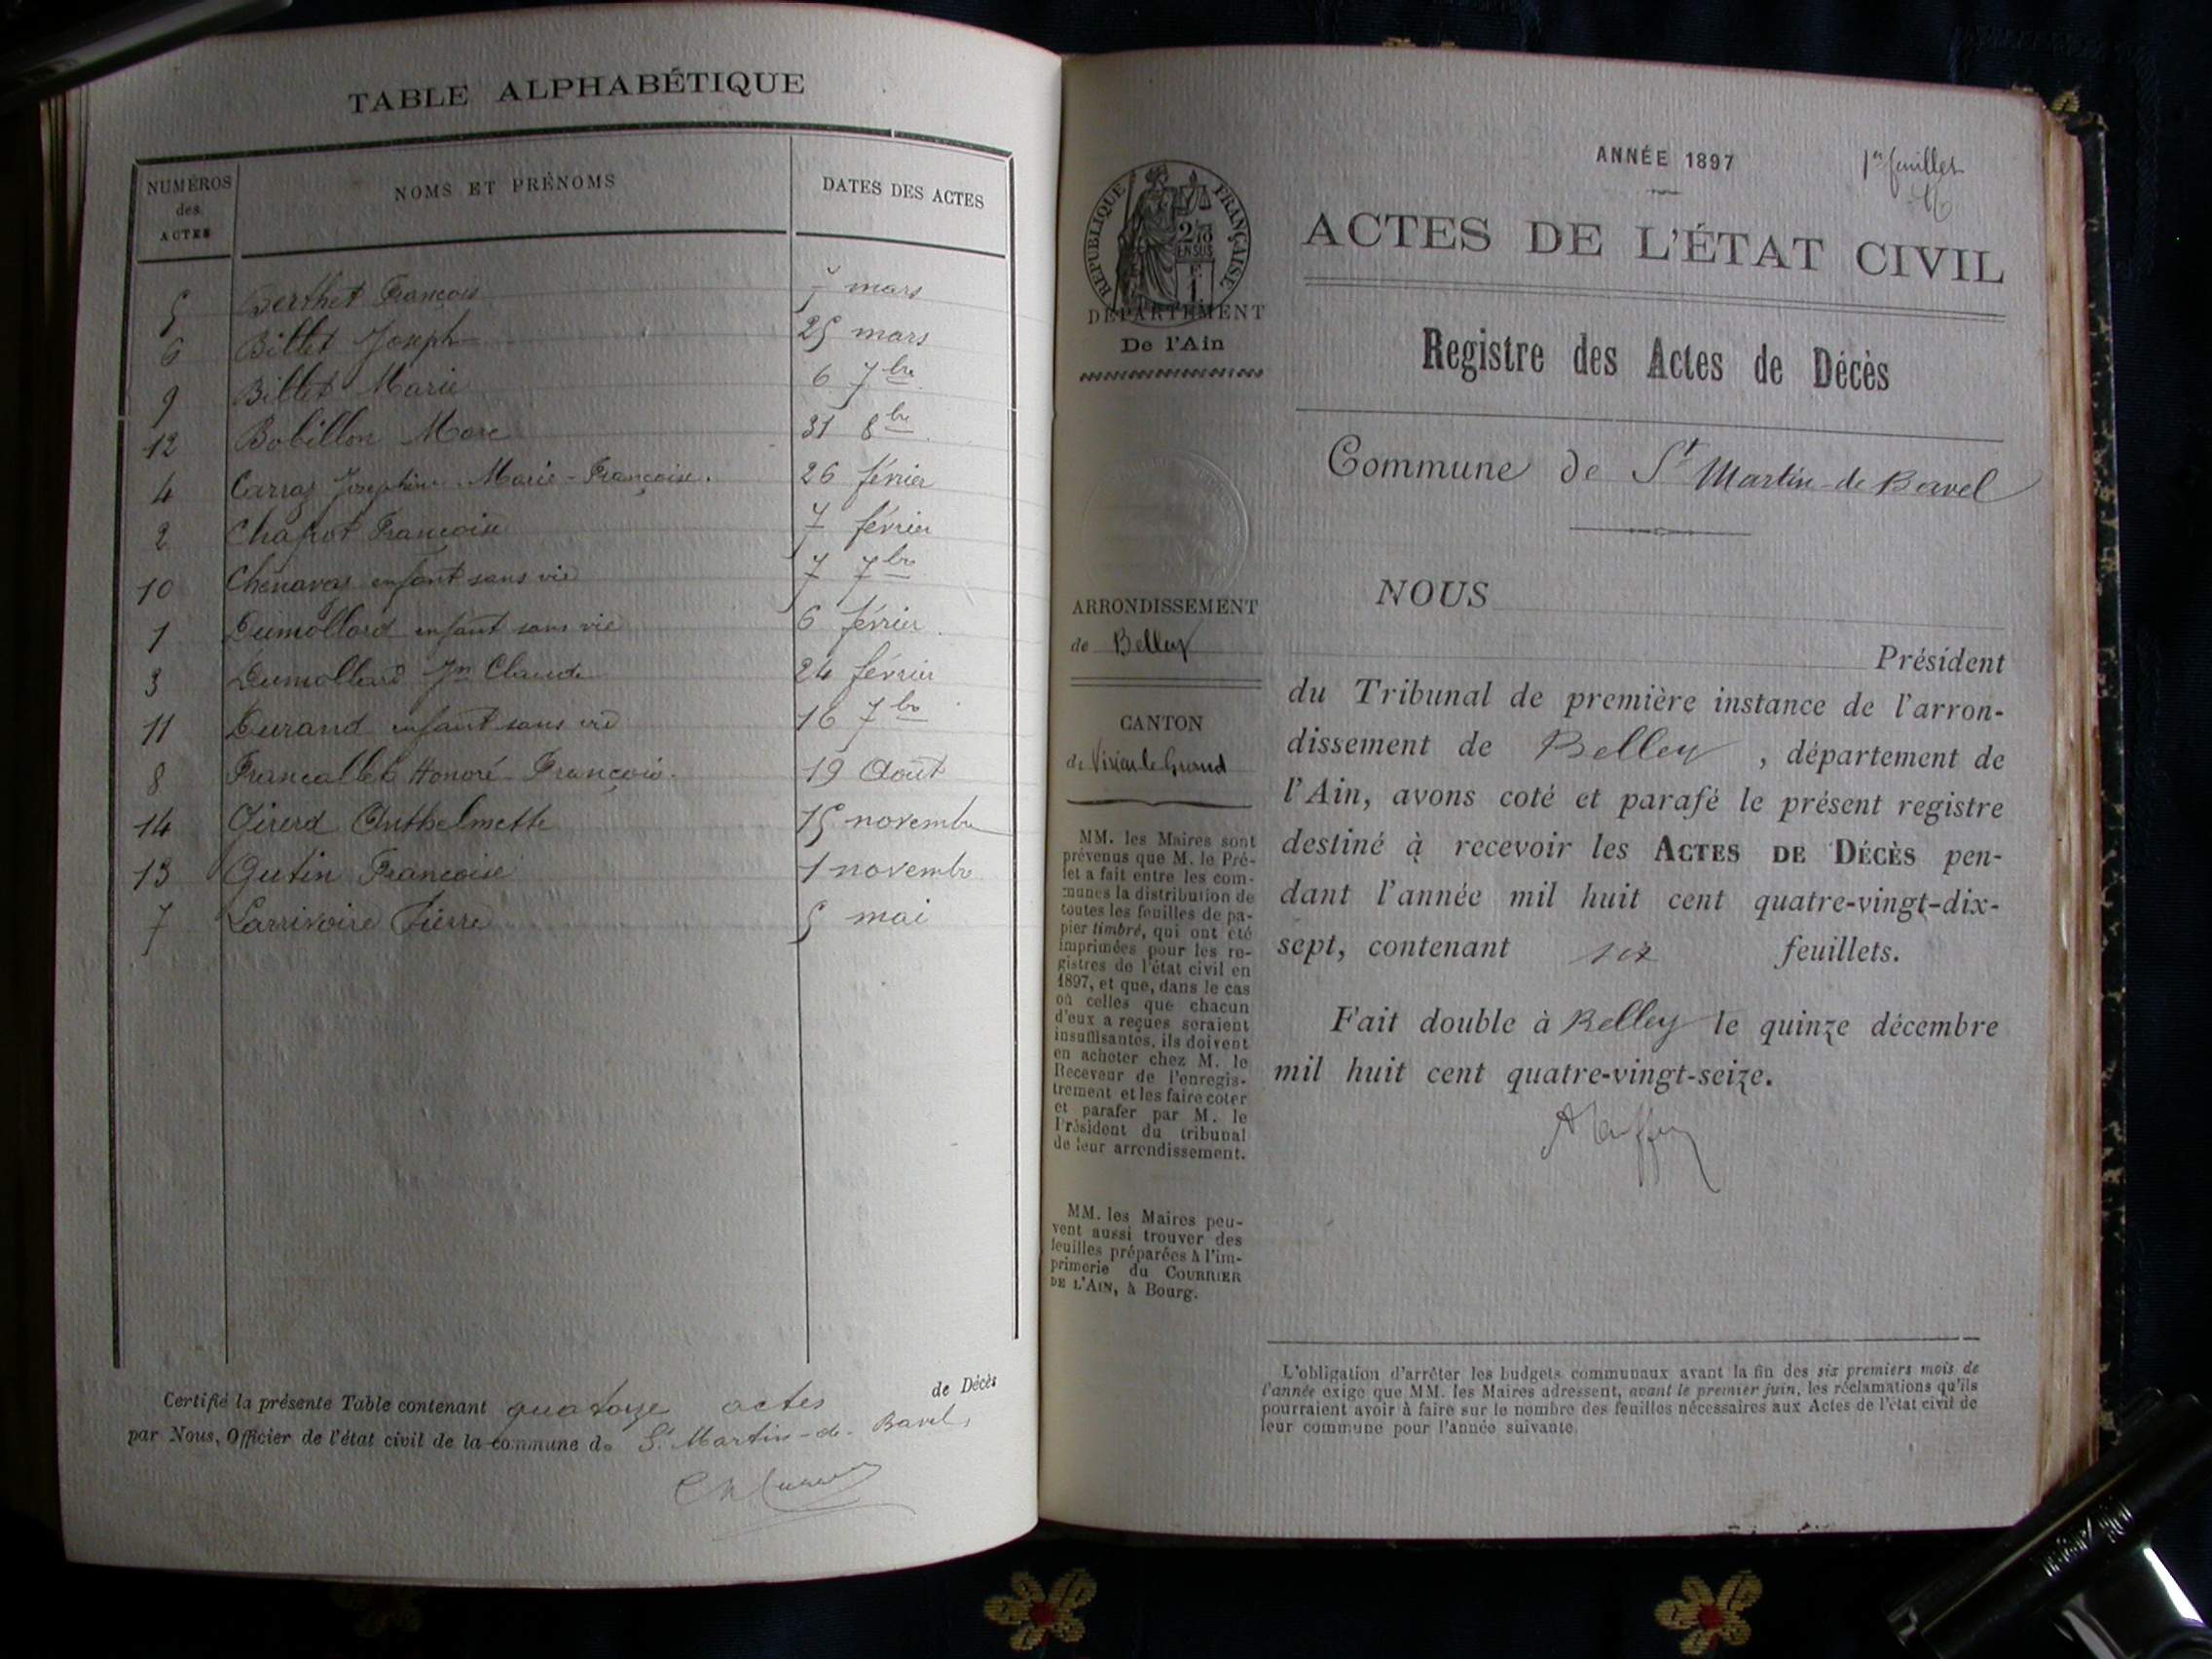 TABLE ALPHABÉTIQUE
NUMÉROS des ACTES NOMS ET PRÉNOMS DATES DES ACTES
5 Berthet François 7 mars
6 Billet Joseph 25 mars
9 Billet Marie 6 7bre
12 Bobillon Marc 31 8bre
4 Carraz Joséphine Marie-Françoise. 26 février
2 Chapot Françoise 7 février
10 Chenavas enfant sans vie 7 7bre
1 Dumollard enfant sans vie 6 février
3 Dumollard Jn Claude 24 février
11 Durand enfant sans vie 16 7bre
8 Francallet Honoré-François. 19 Août
14 Girerd Anthelmette 15 novembre
13 Gutin Françoise 1 novembre
7 Larrivoire Pierre 5 mai
Certifié la présente Table contenant quatorze actes de Décès
par Nous, Officier de l'état civil de la commune de St Martin-de-Bavel
RÉPUBLIQUE FRANÇAISE
2/10
EN SUS
DÉPARTEMENT
De l'Ain
ARRONDISSEMENT
de Belley
CANTON
de Virieu le Grand
MM. les Maires sont
prévenus que M. le Pré-
fet a fait entre les com-
munes la distribution de
toutes les feuilles de pa-
pier timbré, qui ont été
imprimées pour les re-
gistres de l'état civil en
1897, et que, dans le cas
où celles que chacun
d'eux a reçues seraient
insuffisantes, ils doivent
en acheter chez M. le
Receveur de l'enregis-
trement et les faire coter
et parafer par M. le
Président du tribunal
de leur arrondissement.
MM. les Maires peu-
vent aussi trouver des
feuilles préparées à l'im-
primerie du COURRIER
DE L'AIN, à Bourg.
ANNÉE 1897
1er feuillet
ACTES DE L'ÉTAT CIVIL
Registre des Actes de Décès
Commune de St Martin-de-Bavel
NOUS
Président
du Tribunal de première instance de l'arron-
dissement de Belley, département de
l'Ain, avons coté et parafé le présent registre
destiné à recevoir les ACTES DE DÉCÈS pen-
dant l'année mil huit cent quatre-vingt-dix-
sept, contenant six feuillets.
Fait double à Belley le quinze décembre
mil huit cent quatre-vingt-seize.
L'obligation d'arrêter les budgets communaux avant la fin des six premiers mois de
l'année exige que MM. les Maires adressent, avant le premier juin, les réclamations qu'ils
pourraient avoir à faire sur le nombre des feuilles nécessaires aux Actes de l'état civil de
leur commune pour l'année suivante.